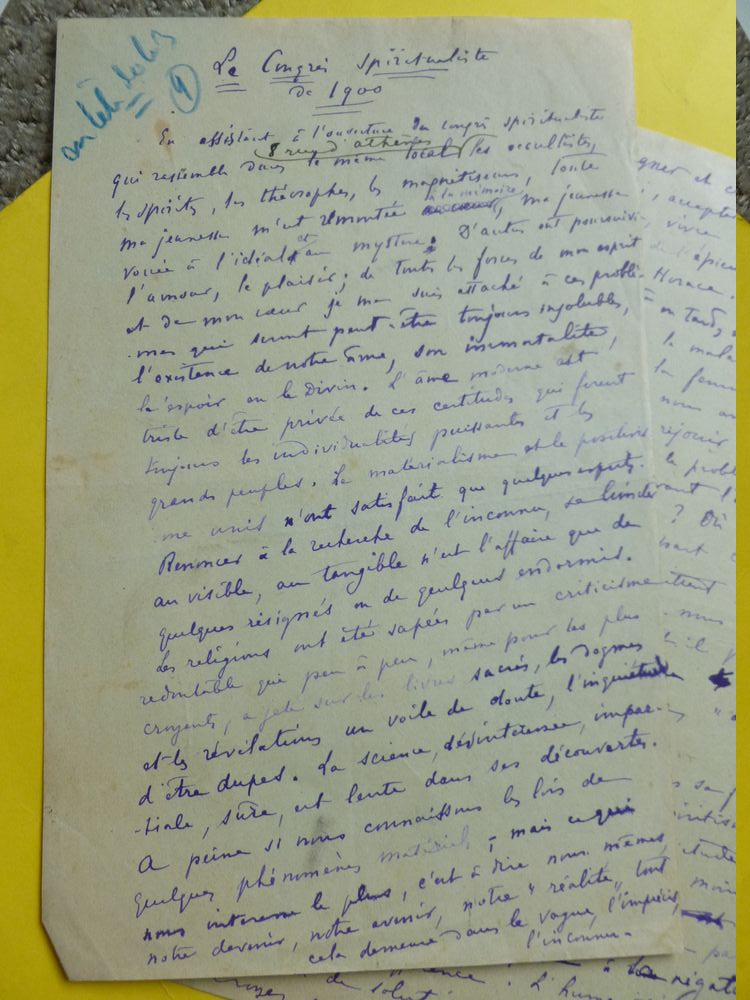 1
Le Congrès Spiritualiste
de 1900
En assistant à l'ouverture du congrès spiritualiste
8 rue d'athènes
qui rassemble dans le même local les occultistes,
les spirites, les théosophes, les magnétiseurs, toute
à la mémoire
ma jeunesse m'est remontée, ma jeunesse
vouée à l'idéal et au mystère. D'autres ont poursuivi
l'amour, le plaisir; de toutes les forces de mon esprit
et de mon cœur je me suis attaché à ces problè-
-mes qui seront peut-être toujours insolubles,
l'existence de notre âme, son immortalité,
l'espoir en le Divin. L'âme moderne est
triste d'être privée de ces certitudes qui firent
toujours les individualités puissantes et les
grands peuples. Le matérialisme et le positivis-
me unis n'ont satisfait que quelques esprits.
Renoncer à la recherche de l'inconnu, se limiter
au visible, au tangible n'est l'affaire que de
quelques résignés ou de quelques endormis.
Les religions ont été sapées par un criticisme
redoutable qui peu à peu, même pour les plus
croyants, a jeté sur les livres sacrés, les dogmes
et les révélations un voile de doute, l'inquiétude
d'être dupes. La science, désintéressée, impar-
-tiale, sûre, est lente dans ses découvertes.
A peine si nous connaissons les lois de
quelques phénomènes matériels; mais ce qui
nous intéresse le plus, c'est à dire nous mêmes,
notre devenir, notre avenir, notre "réalité", tout
cela demeure dans le vague, l'imprécis,
l'inconnu.
vivre
Horace.
réjouir
? Où
nous
de salut. L'hum